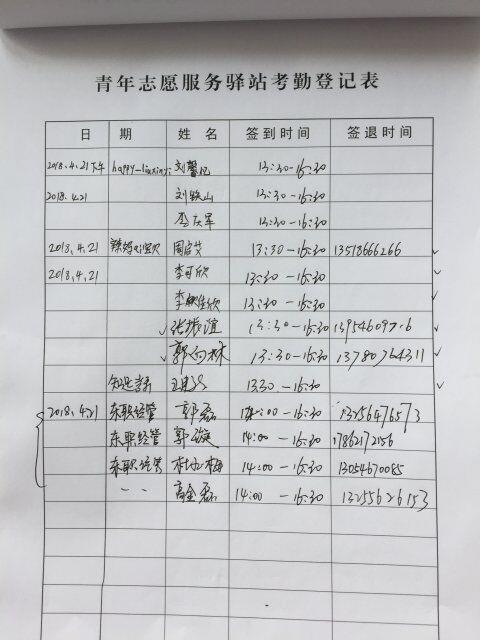 青年志愿服务驿站考勤登记表
日 期 姓 名 签到时间 签退时间
2018.4.21下午 happy 刘馨 13:30-16:30
2018.4.21 刘铁山 13:30-16:30
李庆军 13:30-16:30
2018.4.21 周启艾 13:30-16:30 13518666266
2018.4.21 李可欣 13:30-16:30
李 欣 13:30-16:30
张振谊 13:30-16:30
郭向林 13:30-16:30 13780764311
13:30-16:30
2018.4.21 东职经管 郭磊 14:00-16:30 13256476573
东职经管 郭璇 14:00-16:30 17862172156
东职经管 杜 梅 14:00-16:30 13054670085
高金磊 14:00-16:30 13255626153